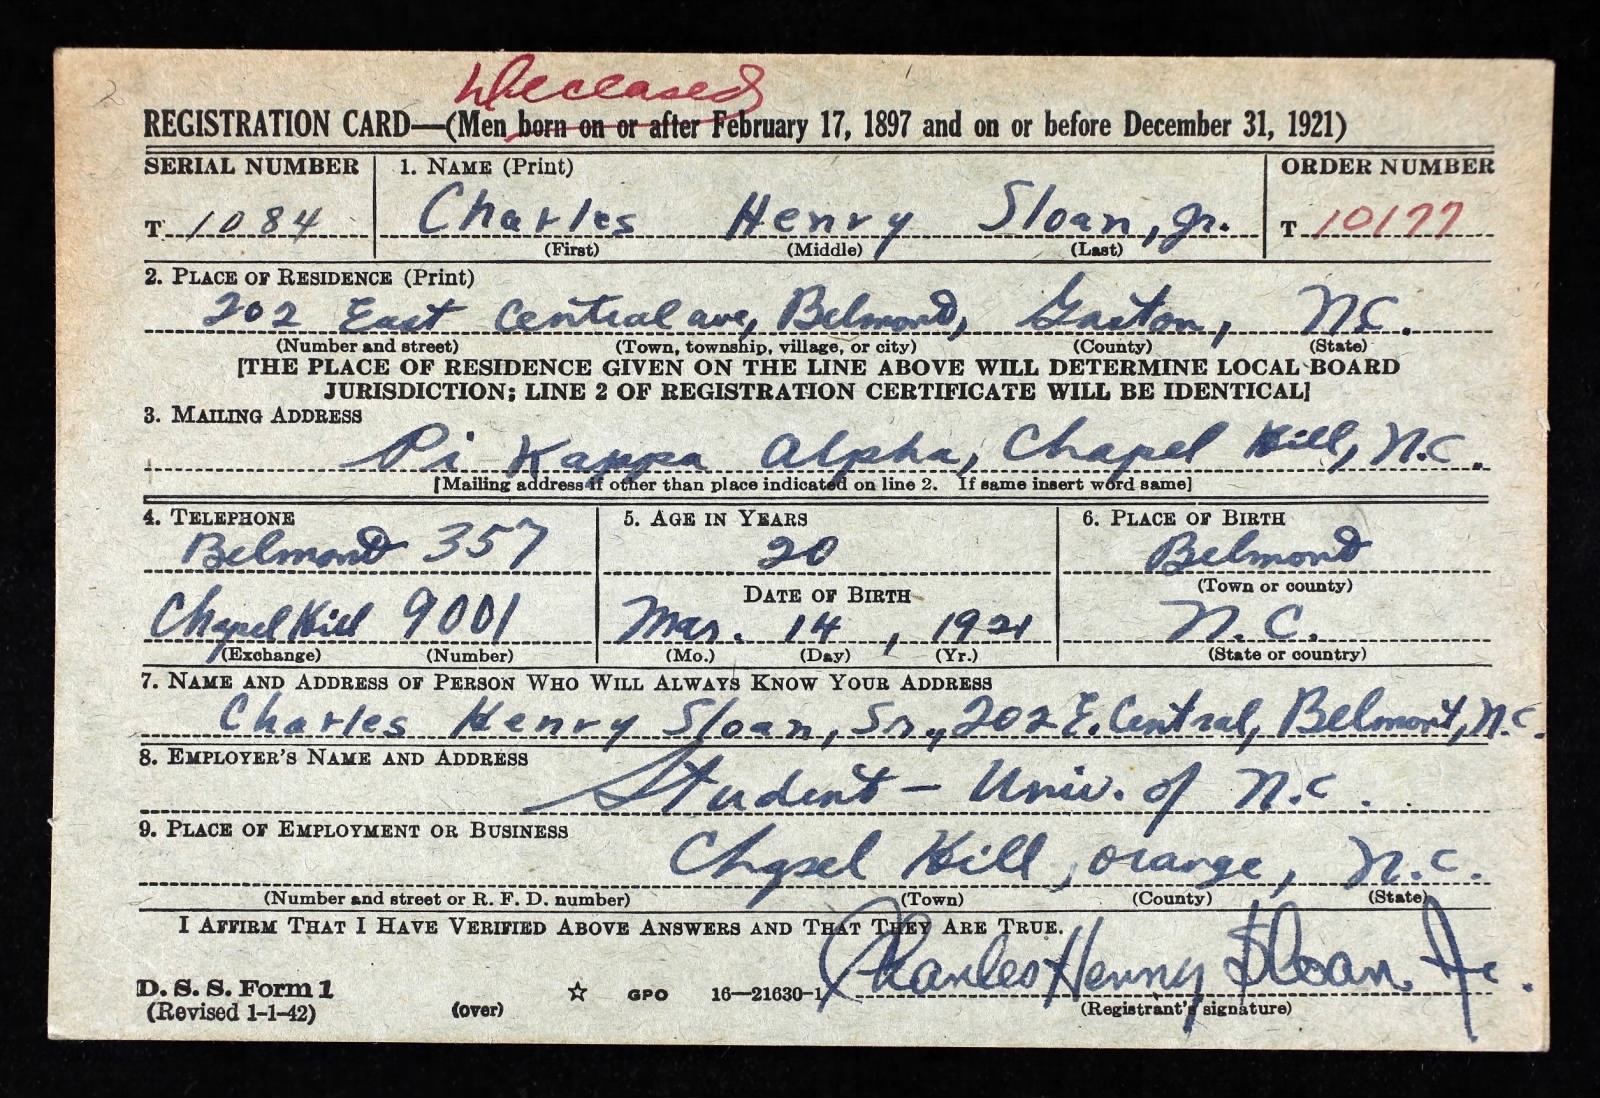 Deceased
REGISTRATION CARD—(Men born on or after February 17, 1897 and on or before December 31, 1921)
SERIAL NUMBER 1. NAME (Print) ORDER NUMBER
T 1084 Charles Henry Sloan, Jr. T 10177
(First) (Middle) (Last)
2. PLACE OF RESIDENCE (Print)
202 East Central ave, Belmond, Gaston, N.C.
(Number and street) (Town, township, village, or city) (County) (State)
[THE PLACE OF RESIDENCE GIVEN ON THE LINE ABOVE WILL DETERMINE LOCAL BOARD
JURISDICTION; LINE 2 OF REGISTRATION CERTIFICATE WILL BE IDENTICAL]
3. MAILING ADDRESS
Pi Kappa Alpha, Chapel Hill, N.C.
[Mailing address if other than place indicated on line 2. If same insert word same]
4. TELEPHONE 5. AGE IN YEARS 6. PLACE OF BIRTH
Belmond 357 20 Belmond
DATE OF BIRTH (Town or county)
Chapel Hill 9001 Mar. 14, 1921 N.C.
(Exchange) (Number) (Mo.) (Day) (Yr.) (State or country)
7. NAME AND ADDRESS OF PERSON WHO WILL ALWAYS KNOW YOUR ADDRESS
Charles Henry Sloan, Sr., 202 E. Central, Belmont, N.C.
8. EMPLOYER'S NAME AND ADDRESS
Student – Univ. of N.C.
9. PLACE OF EMPLOYMENT OR BUSINESS
Chapel Hill, Orange, N.C.
(Number and street or R. F. D. number) (Town) (County) (State)
I AFFIRM THAT I HAVE VERIFIED ABOVE ANSWERS AND THAT THEY ARE TRUE.
Charles Henry Sloan, Jr.
D. S. S. Form 1
(Revised 1-1-42) (over) ☆ GPO 16—21630-1 (Registrant's signature)